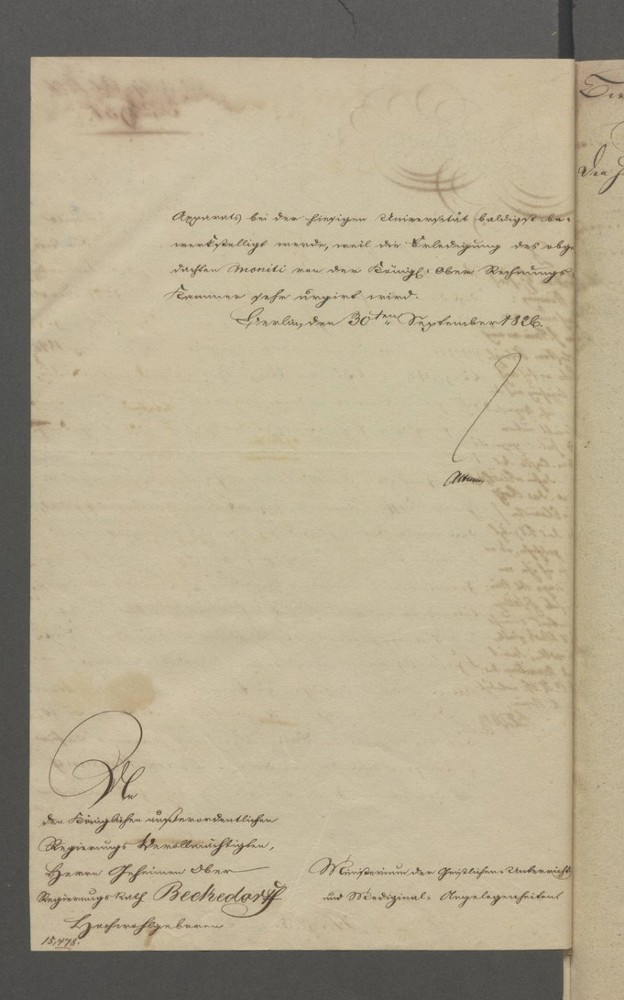 Apparats bei der hiesigen Universität baldigst be-
werkstelligt werde, weil die Erledigung des abge-
dachten Moniti von der Königl: Ober Rechnungs
Kammer sehr urgirt wird.
Berlin, den 30ten September 1826.
Altenst
An
den Königlichen außerordentlichen
Regierungs Bevollmächtigten,
Herrn Geheimen Ober
Regierungs Rath Beckedorff
Hochwohlgeboren
15,478.
Ministerium der Geistlichen Unterrichts
und Medizinal-Angelegenheiten